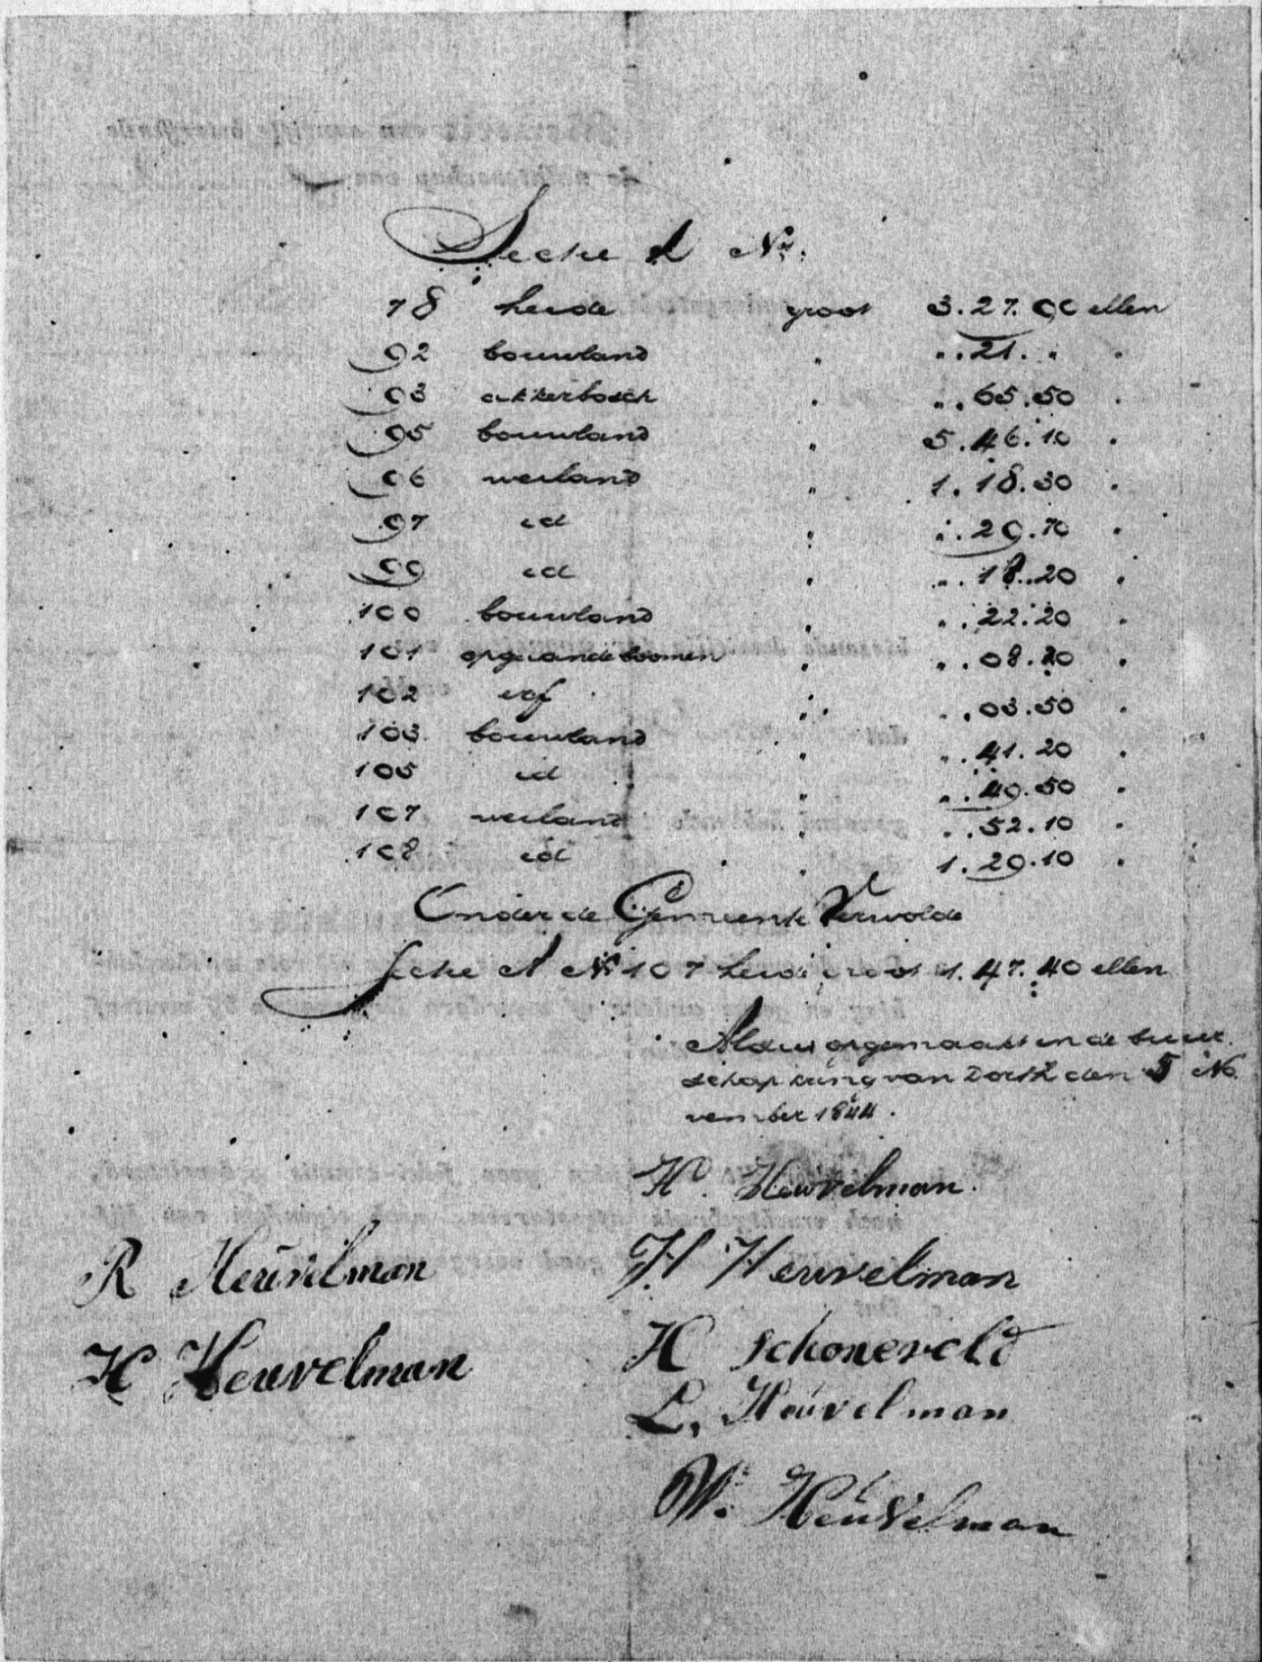 Sectie A No:
78 heide groot 3.27.90 ellen
92 bouwland " ".21. " "
93 akkerbosch " ".65.50 "
95 bouwland " 5.46.10 "
96 weiland " 1.18.30 "
97 id " ".29.70 "
99 id " ".18.20 "
100 bouwland " ".22.20 "
101 opgaande boomen " ".08.20 "
102 erf " ".03.50 "
103 bouwland " ".41.20 "
105 id " ".49.50 "
107 weiland " ".52.10 "
108 id " 1.29.10 "
Onder de Gemeente Verwolde
Sectie A No 107 heide groot 1.47.40 ellen
Aldus opgemaakt in de buur
schap kring van Dorth den 5 No
vember 1844.
H. Heuvelman.
R Heuvelman H. Heuvelman
H Heuvelman H Schoneveld
L. Heuvelman
W. Heuvelman